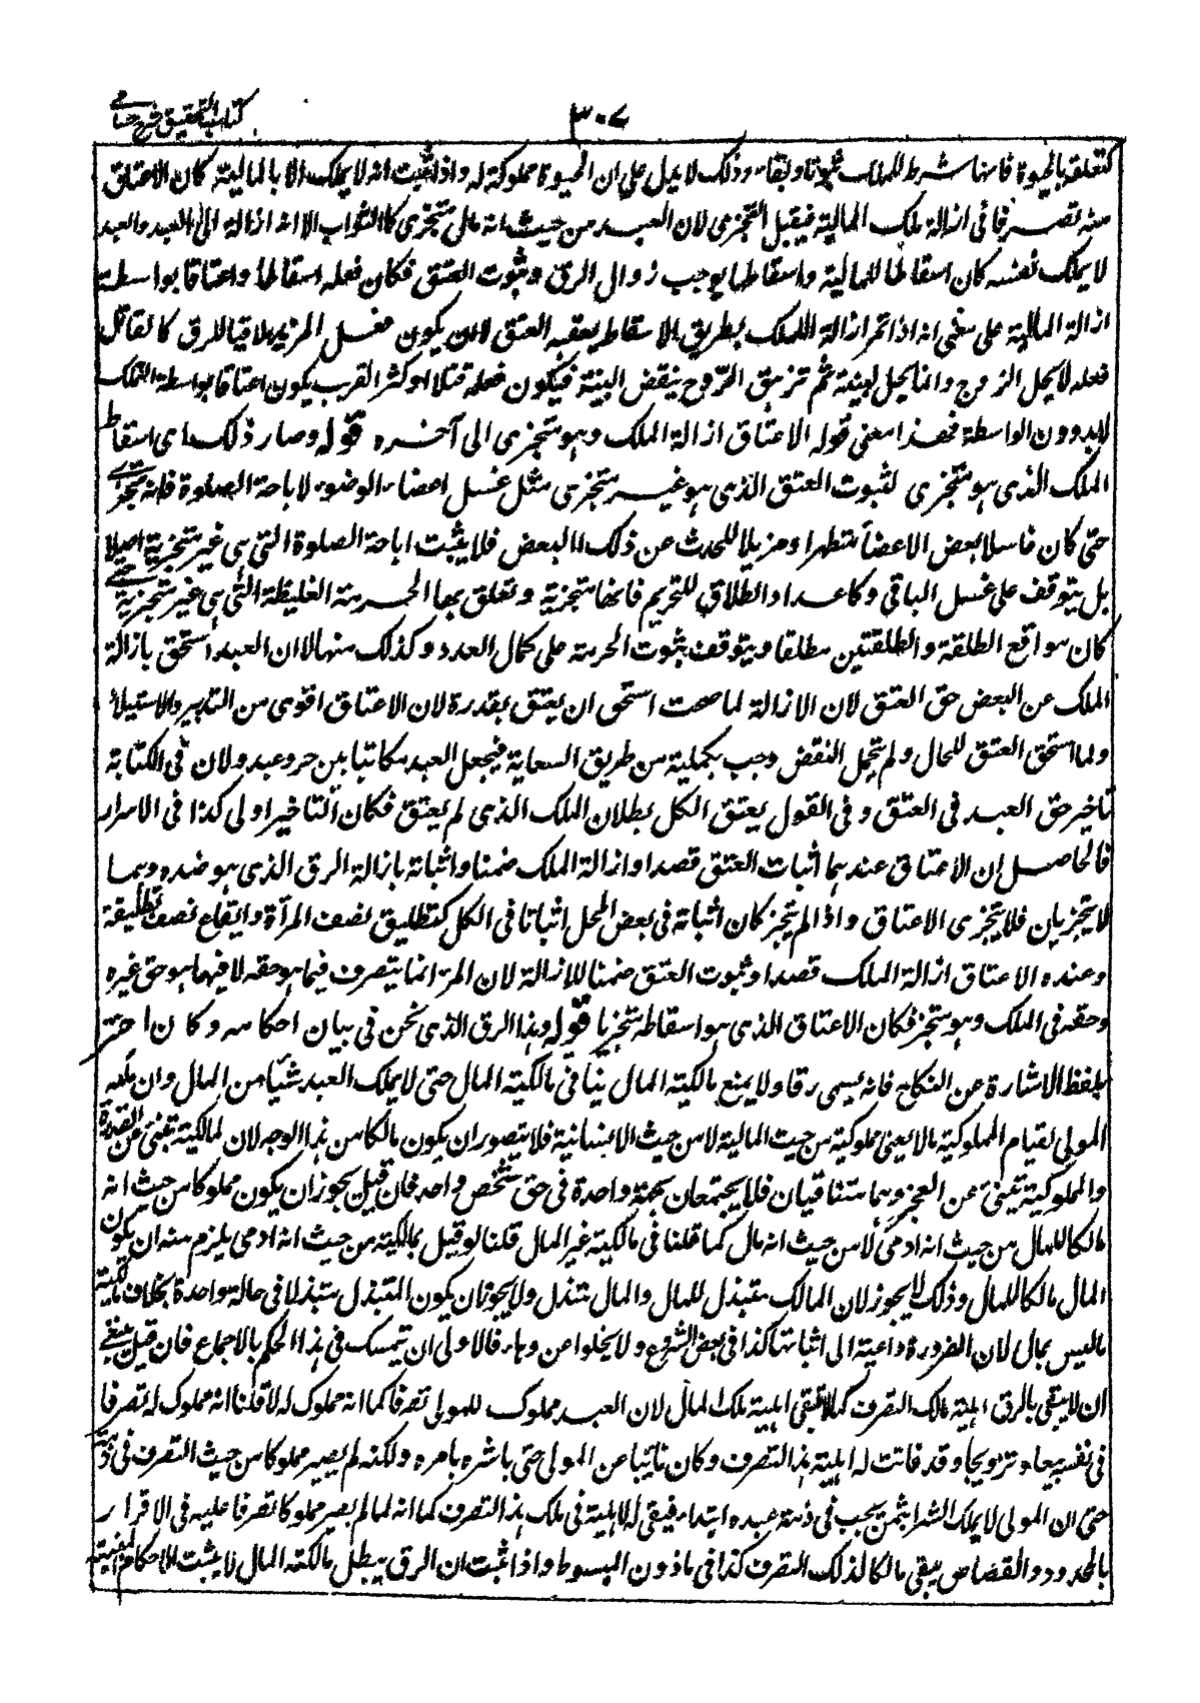 كتاب التحقيق شرح حسامى
٣٠٧
كتعلقه بالحيوة فانها شرط للملك ثبوتا وبقاء وذلك لا يدل على ان الحيوة مملوكة له واذا ثبت انه لا يملك الا بالمالية كان الاعتاق
منه تصرفا فى ازالة ملك المالية فيقبل التجزى لان العبد من حيث انه مال متجزى كالثواب الا انه ازالة الى العبد والعبد
لا يملك نفسه كان اسقاطا للمالية واسقاطها يوجب زوال الرق وثبوت العتق فكان فعله اسقاطا واعتاقا بواسطة
ازالة المالية على معنى انه اذا تم ازالة الملك بطريق الاسقاط يعقبه العتق لا ان يكون فعل المزيل ملاقيا للرق كالقاتل
فعله لا يحل الزوح وانما يحل البنية ثم تزهق الروح بنقض البنية فيكون فعله قتلا او كشر القرب يكون اعتاقا بواسطة التملك
لا بدون الواسطة فهذا معنى قوله الاعتاق ازالة الملك وهو متجزى الى آخره قوله وصار ذلك اى اسقاط
الملك الذى هو متجزى لثبوت العتق الذى هو غير متجزى مثل غسل اعضاء الوضوء لاباحة الصلوة فانه متجزى
حتى كان غاسلا بعض الاعضاء متطهرا ومزيلا للحدث عن ذلك البعض فلا يثبت اباحة الصلوة التى هى غير متجزية اصلا
بل يتوقف على غسل الباقى وكاعداد الطلاق للتحريم فانها متجزية وتعلق بها الحرمة الغليظة التى هى غير متجزية حتى
كان موقع الطلقة والطلقتين مطلقا ويتوقف ثبوت الحرمة على كمال العدد وكذلك منها الا ان العبد استحق بازالة
الملك عن البعض حق العتق لان الازالة لما صحت استحق ان يعتق بقدرة لان الاعتاق اقوى من التدبير والاستيلاد
ولما استحق العتق للحال ولم يحتمل النقض وجب تكميله من طريق السعاية فيجعل العبد مكاتبا بين حر وعبد ولان فى الكتابة
تاخير حق العبد فى العتق وفى القول بعتق الكل بطلان الملك الذى لم يعتق فكان التاخير اولى كذا فى الاسرار
فالحاصل ان الاعتاق عندهما اثبات العتق قصدا وازالة الملك ضمنا واثباته بازالة الرق الذى هو ضده وهما
لا يتجزيان فلا يتجزى الاعتاق واذا لم يتجز كان اثباته فى بعض المحل اثباتا فى الكل كتطليق نصف المرأة وايقاع نصف تطليقة
وعنده الاعتاق ازالة الملك قصدا وثبوت العتق ضمنا للازالة لان المرء انما يتصرف فيما هو حقه لا فيما هو حق غيره
وحقه فى الملك وهو متجز فكان الاعتاق الذى هو اسقاطه متجزيا قوله وهذا الرق الذى نحن فى بيان احكامه وكان احترز
بلفظ الاشارة عن النكاح فانه يسمى رقا ولا يمنع مالكية المال ينافى مالكية المال حتى لا يملك العبد شيئا من المال وان ملكه
المولى لقيام المملوكية مالا يعنى مملوكية من حيث المالية لا من حيث الانسانية فلا يتصور ان يكون مالكا من هذا الوجه لان المالكية تنبئ عن القدرة
والمملوكية تنبئ عن العجز وهما متنافيان فلا يجتمعان بجهة واحدة فى حق شخص واحد فان قيل يجوز ان يكون مملوكا من حيث انه
مالكا للمال من حيث انه ادمى لا من حيث انه مال كما قلنا فى مالكية غير المال قلنا لو قيل بمالكيته من حيث انه ادمى يلزم منه ان يكون
المال مالكا للمال وذلك لا يجوز لان المالك مبتذل للمال والمال مبتذل ولا يجوز ان يكون المبتذل مبتذلا فى حالة واحدة بخلاف مالكية
ما ليس بمال لان الضرورة داعية الى اثباتها كذا فى بعض الشروح ولا يخلوا عن وهاء فالاولى ان يتمسك فى هذا الحكم بالاجماع فان قيل ينبغى
ان لا يبقى بالرق اهلية مالك التصرف كما لا تبقى اهلية ملك المال لان العبد مملوك للمولى تصرفا كما انه مملوك له لا قلنا انه مملوك له تصرفا
فى نفسه بيعا وتزويجا وقد فاتت له اهلية هذا التصرف وكان نائبا عن المولى حتى باشره بامره ولكنه لم يصير مملوكا من حيث التصرف فى ذمته
حتى ان المولى لا يملك الشراء بثمن يجب فى ذمة عبده ابتداء فيبقى له الاهلية فى ملك هذا التصرف كما انه لما لم يصير مملوكا تصرفا عليه فى الاقرار
بالحدود والقصاص يبقى مالكا لذلك التصرف كذا فى ماذون المبسوط واذا ثبت ان الرق يبطل مالكية المال لا يثبت الاحكام المبنية